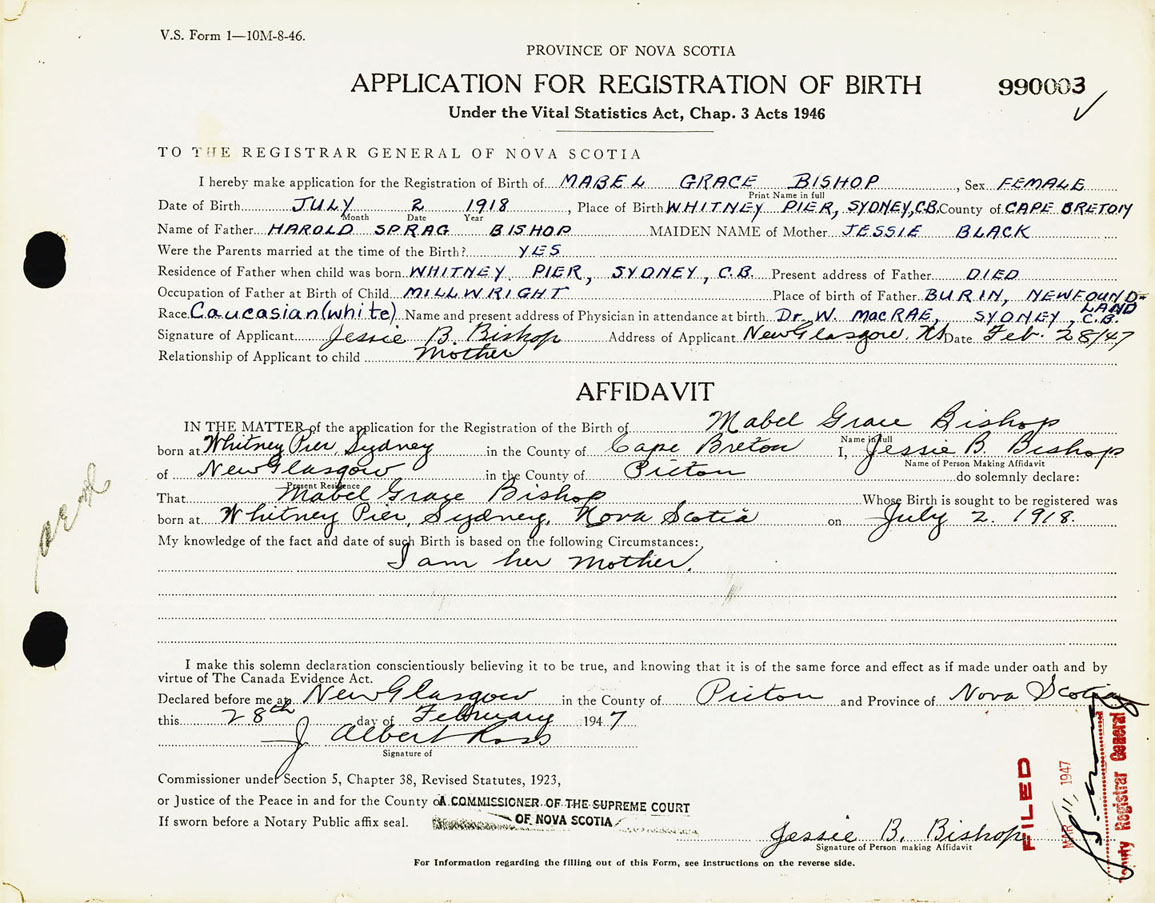 V.S. Form 1—10M-8-46.
PROVINCE OF NOVA SCOTIA
APPLICATION FOR REGISTRATION OF BIRTH 990003
Under the Vital Statistics Act, Chap. 3 Acts 1946
TO THE REGISTRAR GENERAL OF NOVA SCOTIA
I hereby make application for the Registration of Birth of MABEL GRACE BISHOP, Sex FEMALE
Print Name in full
Date of Birth JULY 2 1918, Place of Birth WHITNEY PIER, SYDNEY, C.B. County of CAPE BRETON
Month Date Year
Name of Father HAROLD SPRAG BISHOP MAIDEN NAME of Mother JESSIE BLACK
Were the Parents married at the time of the Birth? YES
Residence of Father when child was born WHITNEY PIER, SYDNEY, C.B. Present address of Father DIED
Occupation of Father at Birth of Child MILLWRIGHT Place of birth of Father BURIN, NEWFOUND-
LAND
Race Caucasian (white) Name and present address of Physician in attendance at birth Dr. W. MacRAE, SYDNEY, C.B.
Signature of Applicant Jessie B. Bishop Address of Applicant New Glasgow, NS Date Feb. 28/47
Relationship of Applicant to child Mother
AFFIDAVIT
IN THE MATTER of the application for the Registration of the Birth of Mabel Grace Bishop
Name in full
born at Whitney Pier Sydney in the County of Cape Breton I, Jessie B. Bishop
Name of Person Making Affidavit
of New Glasgow in the County of Pictou do solemnly declare:
Present Residence
That Mabel Grace Bishop Whose Birth is sought to be registered was
born at Whitney Pier, Sydney, Nova Scotia on July 2. 1918.
My knowledge of the fact and date of such Birth is based on the following Circumstances:
I am her mother.
I make this solemn declaration conscientiously believing it to be true, and knowing that it is of the same force and effect as if made under oath and by
virtue of The Canada Evidence Act.
Declared before me at New Glasgow in the County of Pictou and Province of Nova Scotia
this 28th day of February 1947
J Albert Ross
Signature of
Commissioner under Section 5, Chapter 38, Revised Statutes, 1923,
or Justice of the Peace in and for the County of A COMMISSIONER OF THE SUPREME COURT
OF NOVA SCOTIA
If sworn before a Notary Public affix seal.
Jessie B. Bishop
Signature of Person making Affidavit
For Information regarding the filling out of this Form, see instructions on the reverse side.
FILED
MAR 11 1947
Deputy Registrar General